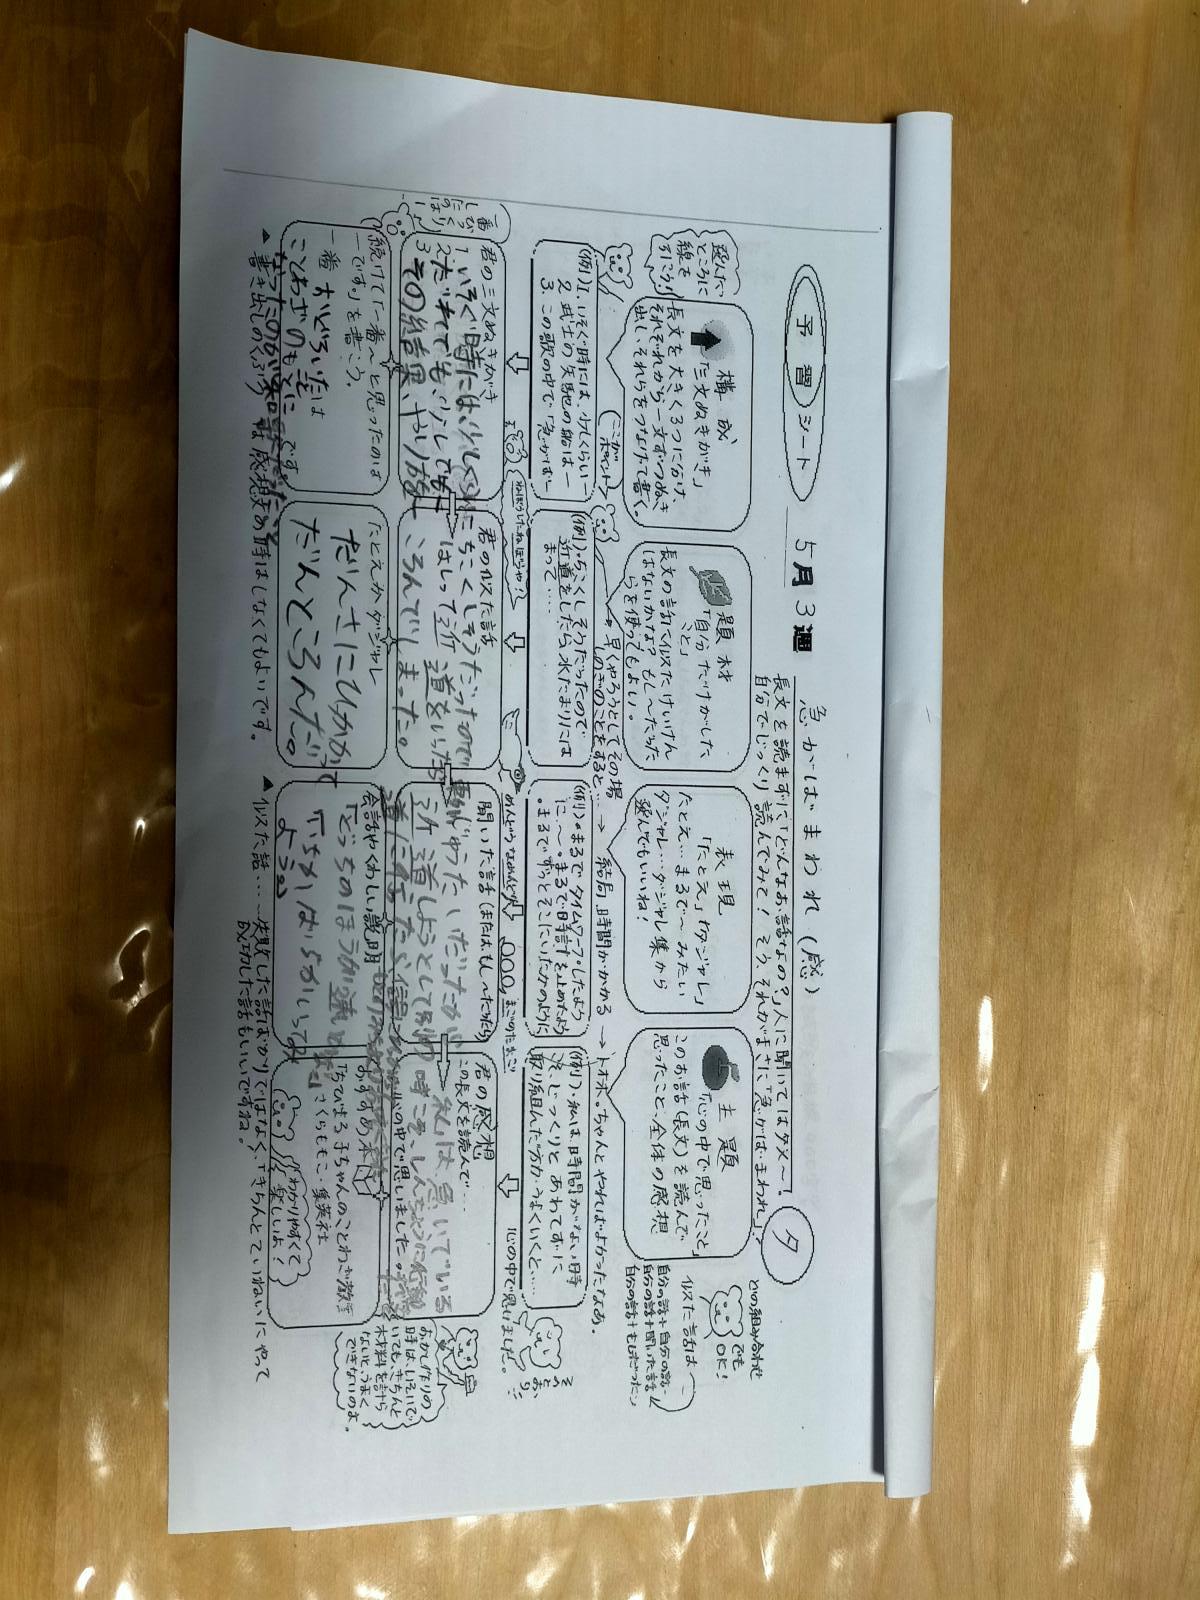 予習シート
5月3週
急がばまわれ(感)
長文を読まずに「どんなお話なの?」人に聞いてはダメ〜!
自分でじっくり読んでみて!そう、それがまさに「急がば・まわれ」?
タ
選んだ
ところに
線を
引こう!
構成
「三文ぬきがき」
長文を大きく3つに分け、
それぞれから一文ずつぬき
出し、それらをつなげて書く。
題材
「自分だけがした
こと」
長文の話に似たけいけん
はないかな?もし〜だった
らを使ってもよい。
表現
「たとえ」「ダジャレ」
たとえ…まるで〜みたい
ダジャレ…ダジャレ集から
選んでもいいね!
主題
「心の中で思ったこと」
このお話(長文)を読んで
思ったこと、全体の感想
どの組み合わせ
でも
OK!
似た話は〜
自分の話+自分の話
自分の話+聞いた話
自分の話+もしだったら
ここが
ポイント
早くやろうとしてその場
しのぎのことをすると…→結局、時間がかかる→トホホ。ちゃんとやればよかったなあ。
(例)1. いそぐ時には、少しくらい—
2. 武士の矢馳の船は—
3. この歌の中で、「急がば—
(例)・ちこくしそうだったので
近道をしたら、水たまりには
まって……
(例)・まるでタイムワープしたよう
に〜。まるで時計を止めたよう
・まるでずっとそこにいたかのように
(例)・私は、時間がない時
こそ、じっくりとあわてずに
取り組んだ方がうまくいくと、……
心の中で思いました。
そのとおり!!
一番
びっくり
したのは
君の三文ぬきがき
1. いそぐ時には少しくらい
2. だれでも、少しでも
3 その結果、やり方
君の似た話
ちこくしそうだったので
はしって近道をいったら
ころんでしまった。
聞いた話(または、もし〜だったら)
君の感想
この長文を読んで…
私は急いでいる
時こそ、しんちょうに行動
心の中で思いました。
続けて「一番〜と思ったのは
—です。」を書こう。
一番おどろいたは
ことわざのもとに
です
たとえかダジャレ
だんさにひっかかって
だんところんだ。
会話やくわしい説明
「どっちのほうが速い
おすすめ本
「ちびまる子ちゃんのことわざ教室
さくらももこ・集英社
わかりやすくて
楽しいよ!
おかし作りの
時は、いそいで
いても、きちんと
材料を計ら
ないと、うまく
できないのよ。
▲書き出しのくふう は感想文の時はしなくてもよいです。
▲似た話……失敗した話ばかりではなく、「きちんとていねいにやって
成功した話もいいですね。